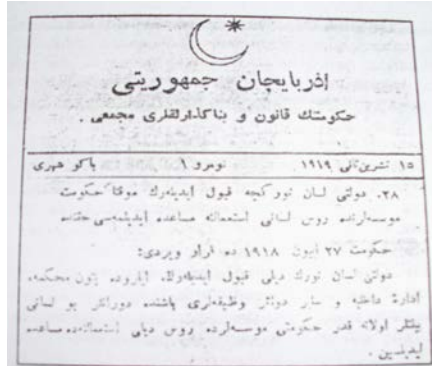 آذربایجان جمهوریتی
حکومتنك قانون و بناگذارلقلری مجمعی .
۱۵ تشرین ثانی ۱۹۱۹ نومرو ۱ باکو شهری
۲۸. دولتی لسان تورکجه قبول ایدیله‌رك موقتا حکومت
موسسه‌لرنده روس لسانی استعمالنه مساعده ایدیلمه‌سی حقنده
حکومت ۲۷ ایون ۱۹۱۸ ده قرار ویردی:
دولتی لسان تورك دیلی قبول ایدیله‌رك، ایلروده بتون محکمه،
ادارۀ داخلیه و سایر دوائر وظیفه‌لری باشنده دورانلر بو لسانی
بیلنلر اولانه قدر حکومتی موسسه‌لرده روس دیلی استعمالنه‌ده مساعده
ایدیلسین .